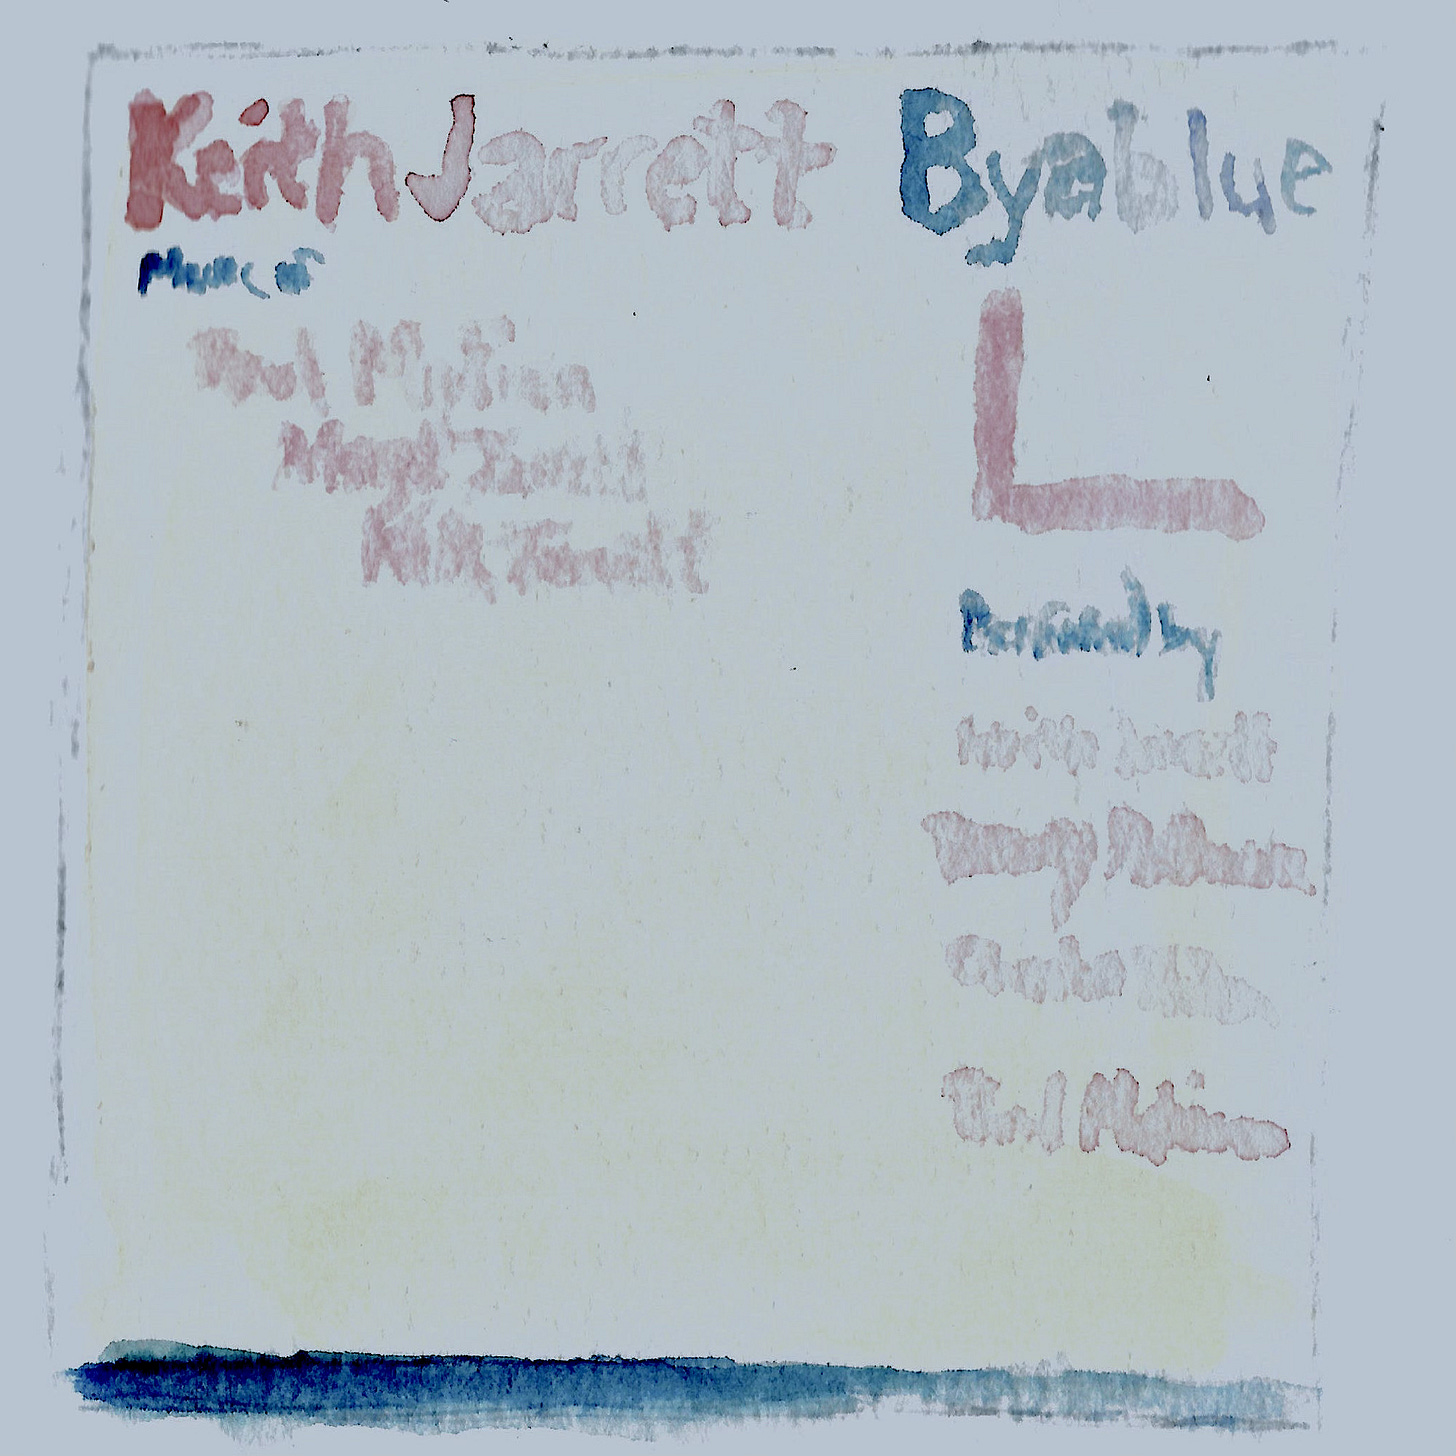 Keith Jarrett Byablue
Music of
Paul Motian
Margot Jarrett
Keith Jarrett
Performed by
Keith Jarrett
Dewey Redman
Charlie Haden
Paul Motian